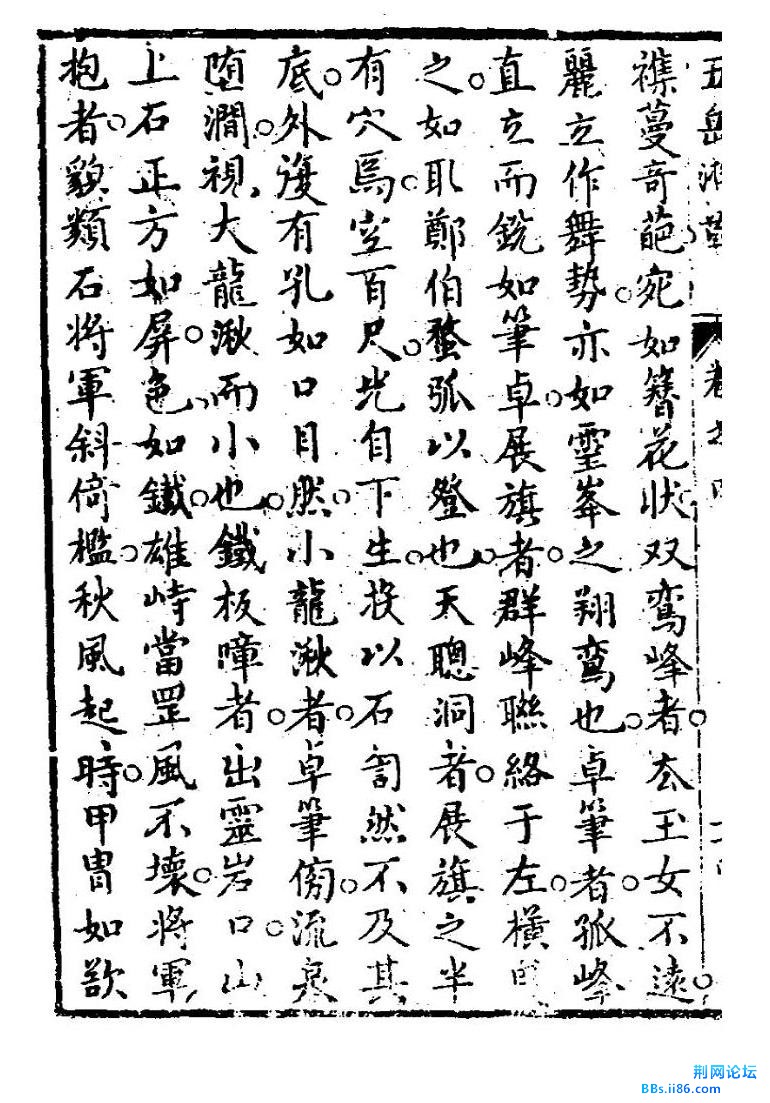 五岳游草 卷之四
襍蔓奇葩宛如簪花状双鸾峰者。厺玉女不遠。
麗立作舞勢。亦如靈峯之翔鸾也。卓筆者。孤峰
直立而銳如筆卓。展旗者。群峰聯絡于左。横曳
之。如取鄭伯蝥弧以登也。天聰洞者。展旗之半
有穴焉。空百尺。光自下生。投以石訇然。不及其
底。外復有孔如口目然。小龍湫者。卓筆傍。流泉
堕澗。視大龍湫而小也。鐵板嶂者。出靈岩口。山
上石正方如屏。色如鐵。雄峙當罡風不壞。將軍
抱者。貌類石將軍斜倚檻。秋風起時。甲冑如欲
荆网论坛
BBs.ii86.com